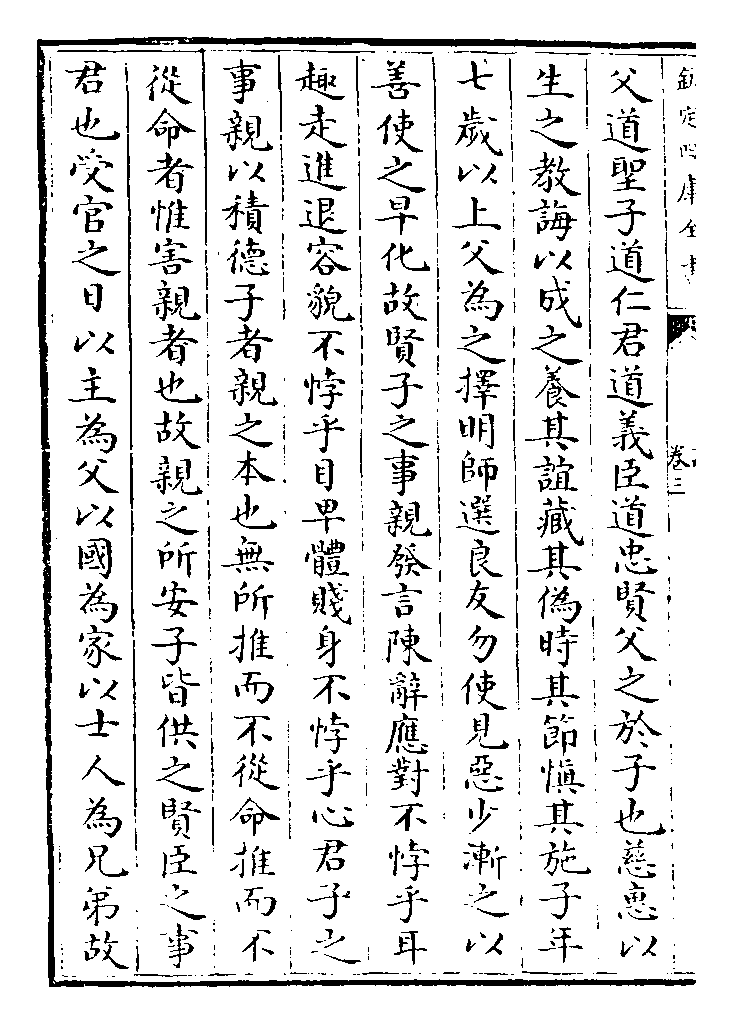 欽定四庫全書
卷三
父道聖子道仁君道義臣道忠賢父之於子也慈惠以
生之教誨以成之養其誼藏其偽時其節慎其施子年
七歲以上父為之擇明師選良友勿使見惡少漸之以
善使之早化故賢子之事親發言陳辭應對不悖乎耳
趣走進退容貌不悖乎目卑體賤身不悖乎心君子之
事親以積德子者親之本也無所推而不從命推而不
從命者惟害親者也故親之所安子皆供之賢臣之事
君也受官之日以主為父以國為家以士人為兄弟故